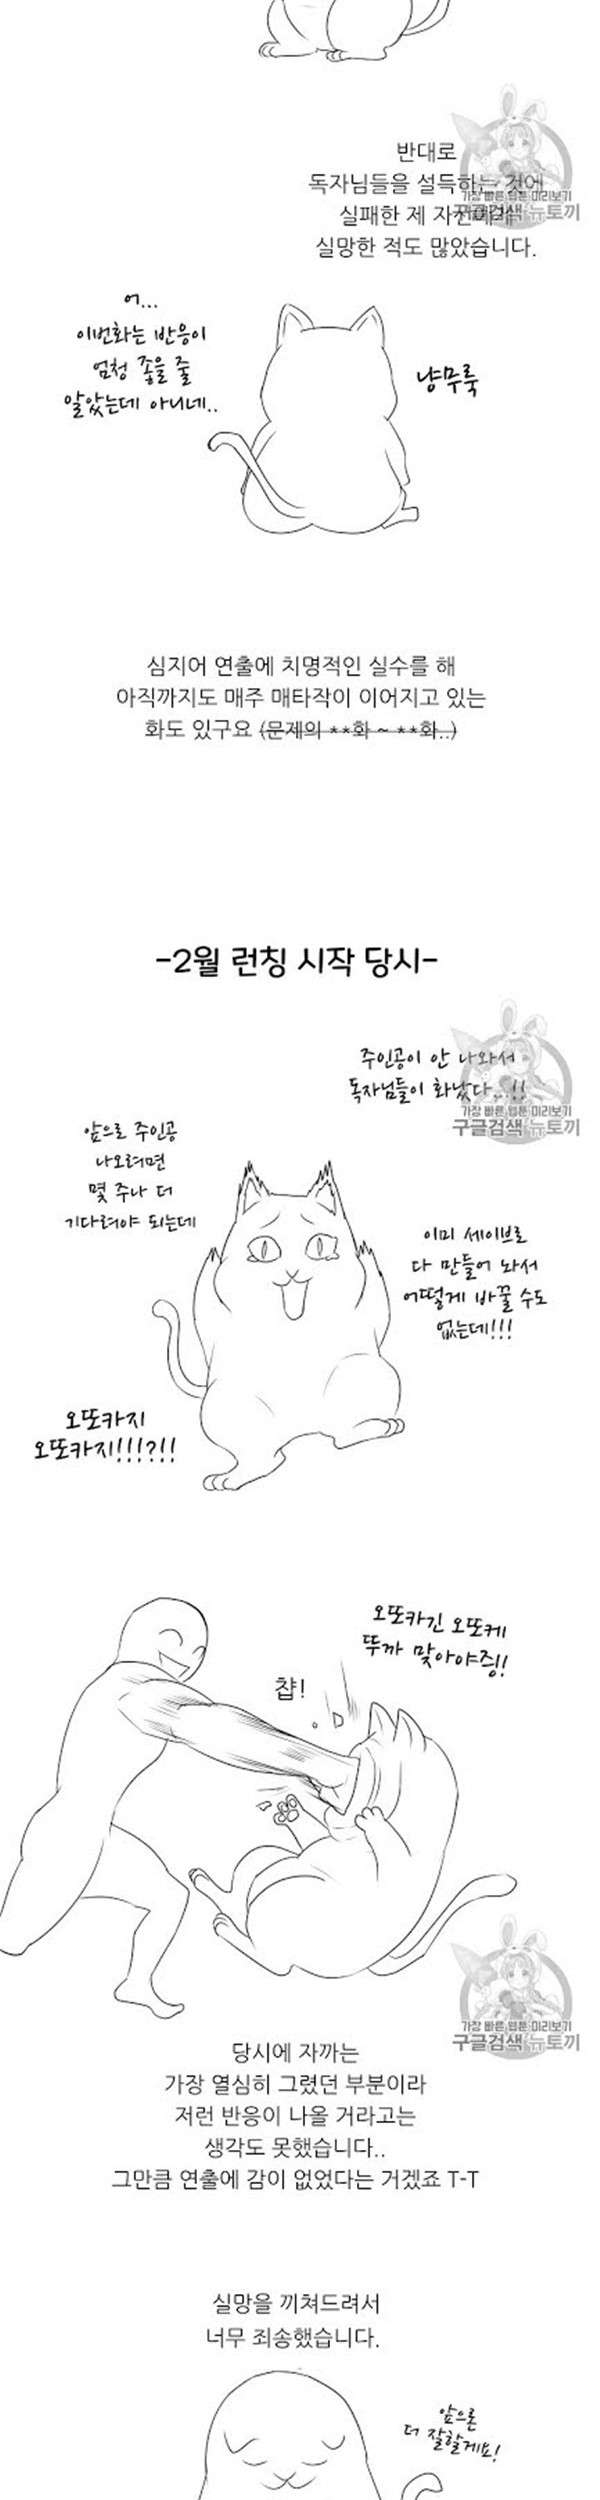 반대로
독자님들을 설득하는 것에
실패한 제 자신에게
실망한 적도 많았습니다.
가장 빠른 웹툰 미리보기
구글검색 뉴토끼
어...
이번화는 반응이
엄청 좋을 줄
알았는데 아니네..
냥무룩
심지어 연출에 치명적인 실수를 해
아직까지도 매주 매타작이 이어지고 있는
화도 있구요 (문제의 **화 ~ **화..)
-2월 런칭 시작 당시-
주인공이 안 나와서
독자님들이 화났다...!!
가장 빠른 웹툰 미리보기
구글검색 뉴토끼
앞으로 주인공
나오려면
몇 주나 더
기다려야 되는데
이미 세이브로
다 만들어 놔서
어떻게 바꿀 수도
없는데!!!
오또카지
오또카지!!!?!!
오또카긴 오또케
뚜까 맞아야즹!!
챱!
가장 빠른 웹툰 미리보기
구글검색 뉴토끼
당시에 자까는
가장 열심히 그렸던 부분이라
저런 반응이 나올 거라고는
생각도 못했습니다..
그만큼 연출에 감이 없었다는 거겠죠 T-T
실망을 끼쳐드려서
너무 죄송했습니다.
앞으론
더 잘할게요!